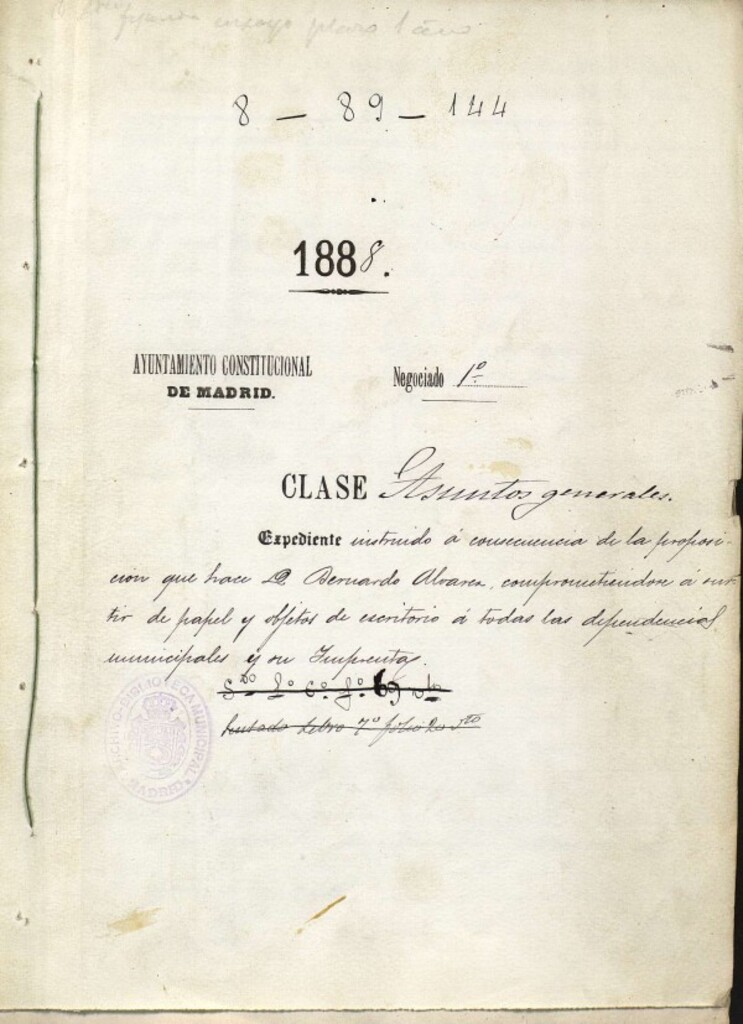 plazo 1 año
8 – 89 – 144
1888.
AYUNTAMIENTO CONSTITUCIONAL
DE MADRID.
Negociado 1º
CLASE Asuntos generales.
Expediente instruido á consecuencia de la proposi-
cion que hace D. Bernardo Alvarez, comprometiendose á sur-
tir de papel y objetos de escritorio á todas las dependencias
municipales y su Imprenta.
69
Libro 7º folio 20 vto
ARCHIVO-BIBLIOTECA MUNICIPAL
MADRID